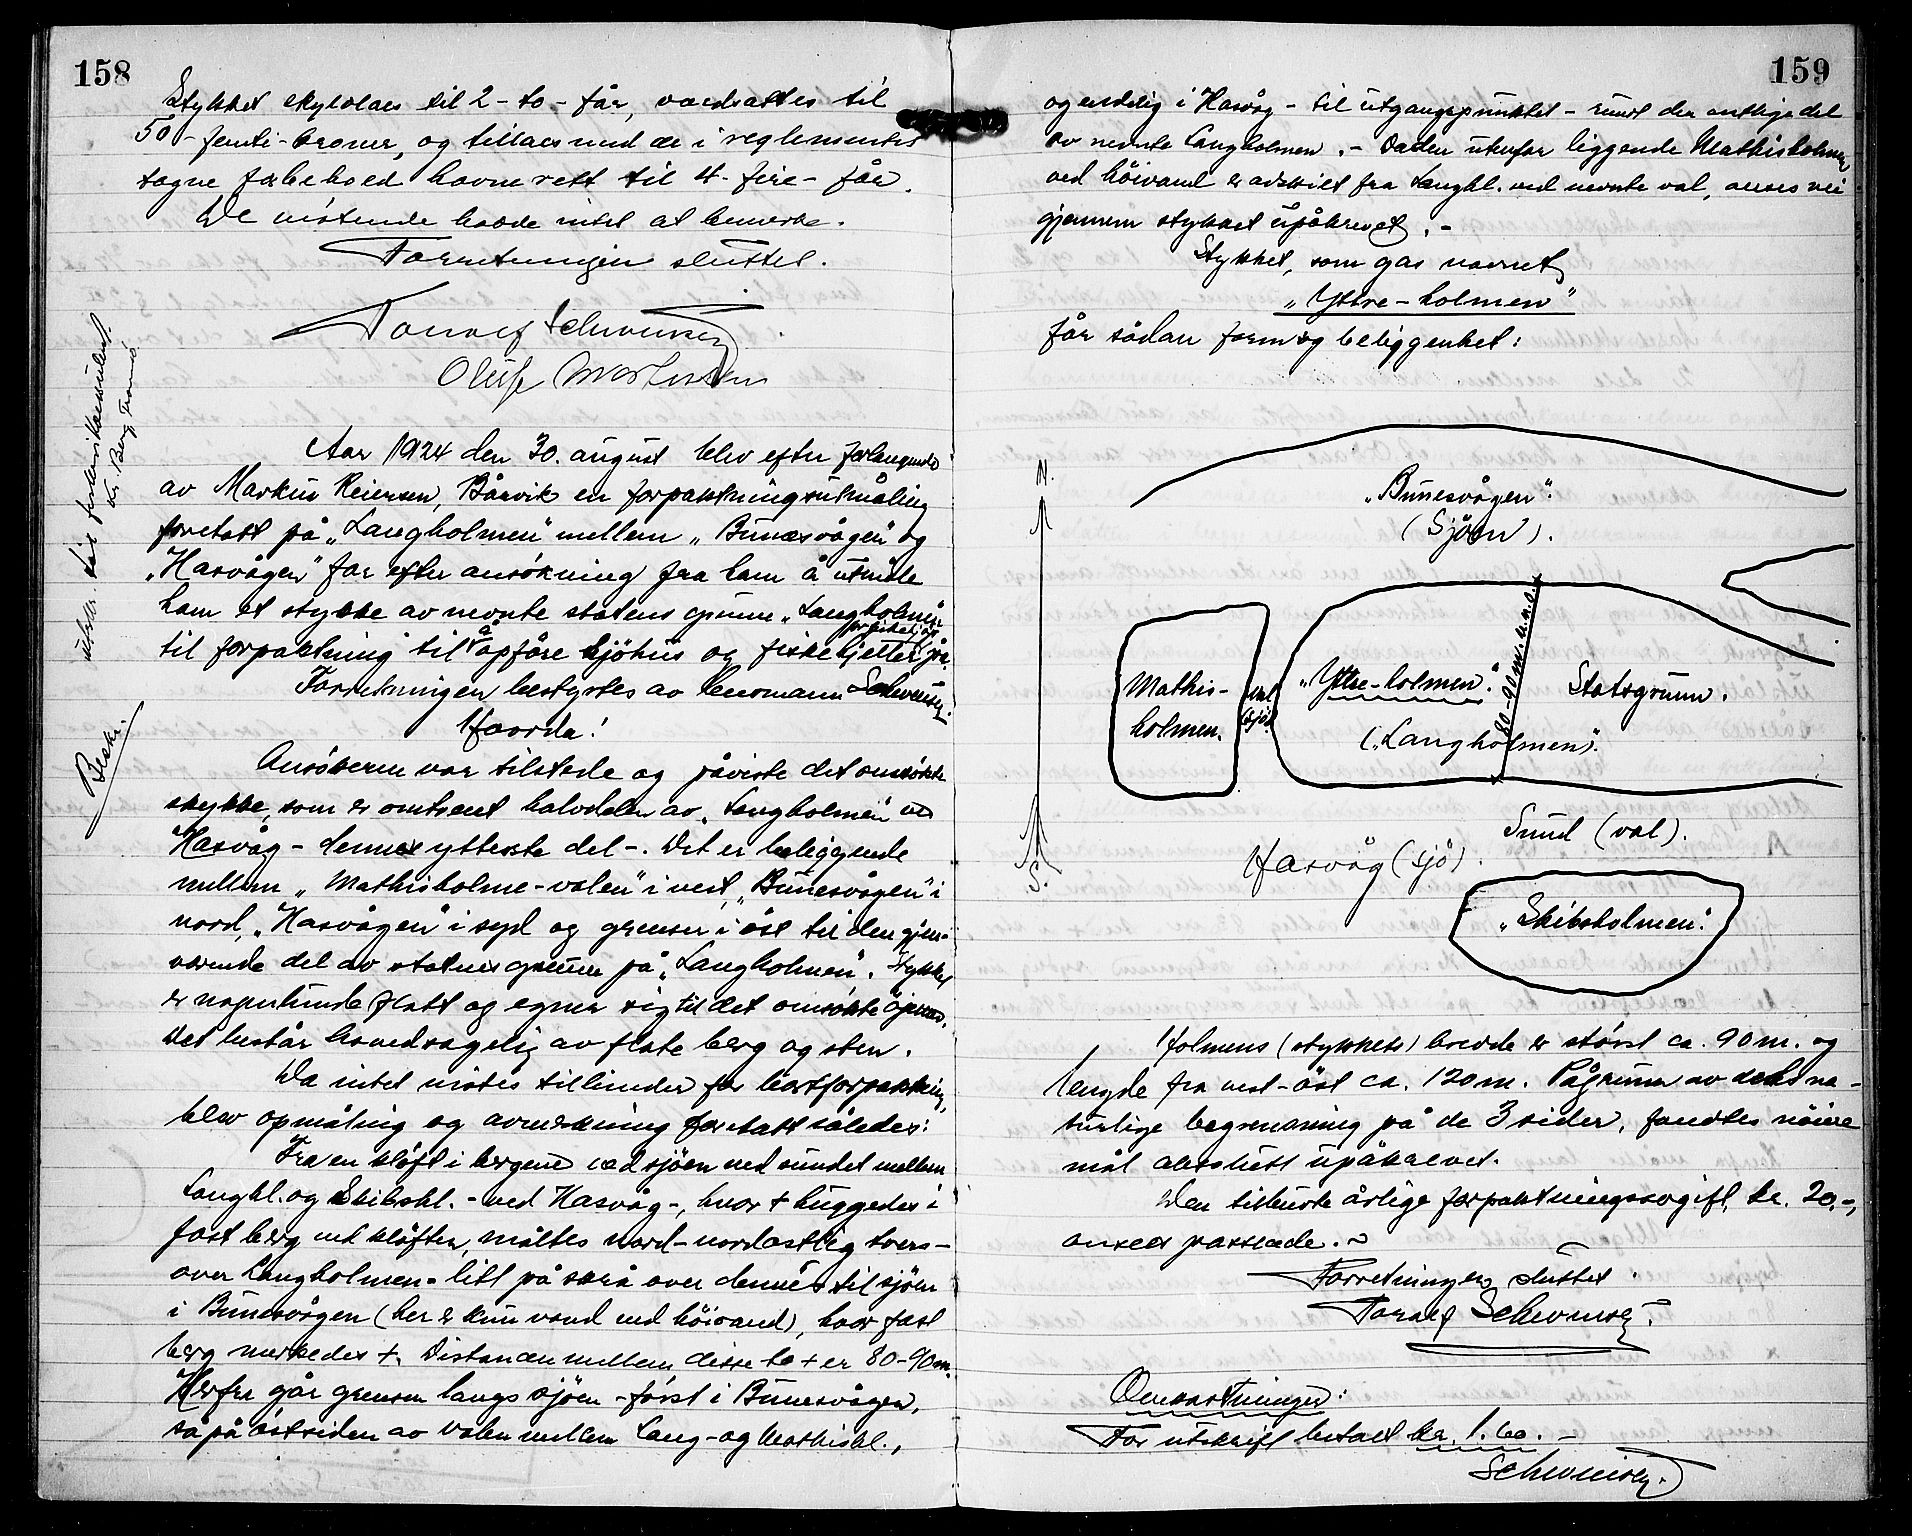 158
Stykket skyldlaes til 2 - to - får, værdsattes til
50 - femti - kroner, og tillaes med de i reglementet
tagne forbehold havnerett til 4 - fire - får.
De møtende hadde intet at bemerke.
Forretningen sluttet.
Oluf Mortensen
Aar 1924 den 30. august blev efter forlangende
av Markus Reiersen, Bårvik en forpaktningsutmåling
foretatt på „Langholmen" mellem „Bunesvågen" og
„Hasvågen" for efter ansökning fra ham å utmåle
ham et stykke av nevnte statens grunn „Langholmen"
til forpaktning til å opföre sjöhus og fiskehjeller på.
Forretningen bestyrtes av lensmann
Hvorda!
Ansökeren var tilstede og påviste det ansökte
stykke, som er omtrent halvdelen av „Langholmen" ved
Hasvåg - dennes ytterste del -. Det er beliggende
mellem „Mathisholme-valen" i vest, „Bunesvågen" i
nord, „Hasvågen" i syd og grenser i öst til den gjen-
værende del av statens grunn på „Langholmen". Stykket
er nogenlunde flatt og egner sig til det omsökte öiemed.
Det består hovedsagelig av flate berg og sten.
Da intet møtes tilhinder for bortforpaktning,
blev opmåling og avmerkning foretatt således:
Fra en klöft i bergene ved sjöen ved sundet mellem
Langhl. og Skibshl. - ved Hasvåg -, hvor + huggedes i
fast berg ved klöften, måltes nord-nordostlig tvers-
over Langholmen - litt på skrå over dennes til sjöen
i Bunesvågen (her er kun vand ved höivand), hvor fast
berg merkedes +. Distancen mellem disse to + er 80-90 m.
Herfra går grensen langs sjöen - først i Bunesvågen,
så på östsiden av valen mellem Lang- og Mathishl.,
Beskr.
159
og endelig i Hasvåg - til utgangspunktet - rundt den vestlige del
av nevnte Langholmen. - Da den utenfor liggende Mathisholmen
ved höivand er adskilt fra Langhl. ved nevnte val, anses vei
gjennem stykket upåkrevet. -
Stykket, som gas navnet
„Yttre-holmen"
får sådan form og beliggenhet:
N.
„Bunesvågen".
(Sjöen).
Mathis-
holmen.
val
(sjö)
„Yttre-holmen".
(„Langholmen").
80-90 m.
Statsgrunn.
Sund (val).
Hasvåg (sjö).
S.
„Skibsholmen".
Holmens (stykkets) bredde er störst ca. 90 m. og
lengde fra vest-öst ca. 120 m. På grunn av dets na-
turlige begrensning på de 3 sider, fandtes nöiere
mål absolutt upåkrevet.
Den tilbudte årlige forpaktningsavgift, kr. 20.-,
ansees passende. -
Forretningen sluttet.
Omkostninger:
For utskrift betalt kr. 1.60. -